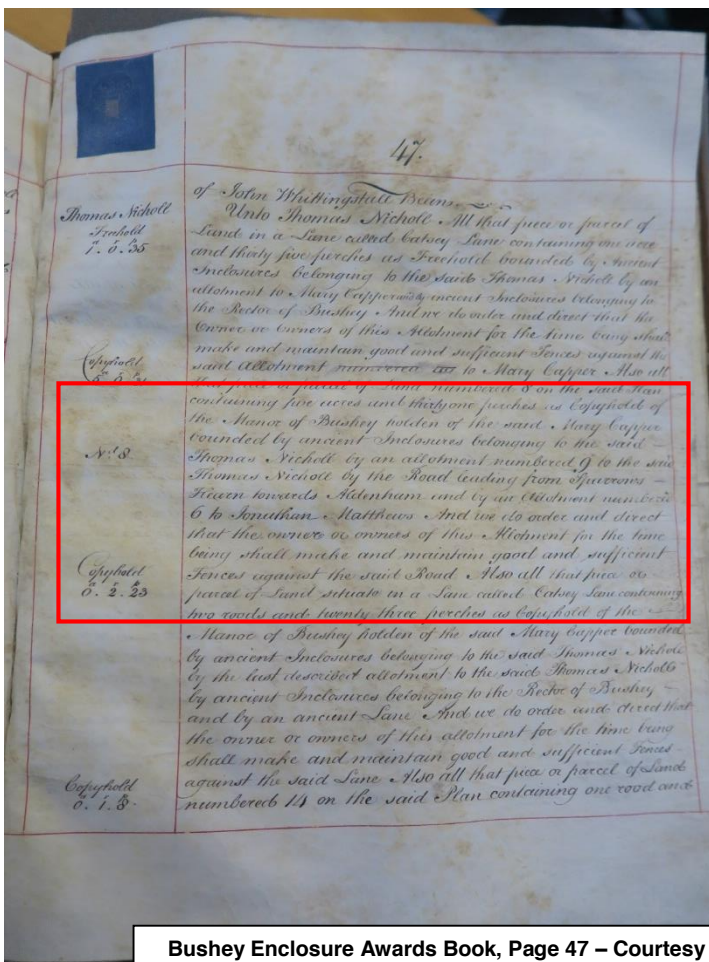 47.
of John Whittingstall Beeins
Thomas Nicholl
Freehold
A R P
1. 0. 35
Unto Thomas Nicholl All that piece or parcel of
Land in a Lane called Catsey Lane containing one acre
and thirty five perches as Freehold bounded by Ancient
Inclosures belonging to the said Thomas Nicholl by an
allotment to Mary Capper and by ancient Inclosures belonging to
the Rector of Bushey And we do order and direct that the
Owner or Owners of this Allotment for the time being shall
make and maintain good and sufficient Fences against the
said Allotment to Mary Capper Also all
Copyhold
that piece or parcel of Land numbered 8 on the said Plan
containing five acres and thirty one perches as Copyhold of
the Manor of Bushey holden of the said Mary Capper
bounded by ancient Inclosures belonging to the said
No. 8
Thomas Nicholl by an allotment numbered 9 to the said
Thomas Nicholl by the Road leading from Sparrows
towards Aldenham and by an Allotment numbered
6 to Jonathan Matthews And we do order and direct
that the owner or owners of this Allotment for the time
being shall make and maintain good and sufficient
Copyhold
A R P
0. 2. 23
Fences against the said Road Also all that piece or
parcel of Land situate in a Lane called Catsey Lane containing
two roods and twenty three perches as Copyhold of the
Manor of Bushey holden of the said Mary Capper bounded
by ancient Inclosures belonging to the said Thomas Nicholl
by the last described allotment to the said Thomas Nicholls
by ancient Inclosures belonging to the Rector of Bushey
and by an ancient Lane And we do order and direct that
the owner or owners of this allotment for the time being
shall make and maintain good and sufficient Fences
against the said Lane Also all that piece or parcel of Land
Copyhold
A R P
0. 1. 8.
numbered 14 on the said Plan containing one rood and
Bushey Enclosure Awards Book, Page 47 – Courtesy